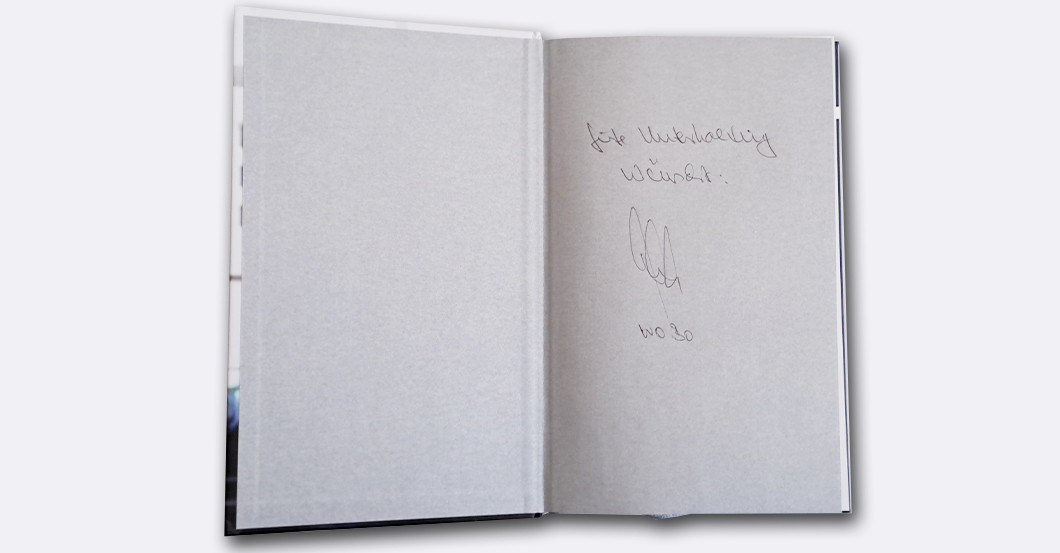 Gute Unterhaltung
wünscht:
WO BO